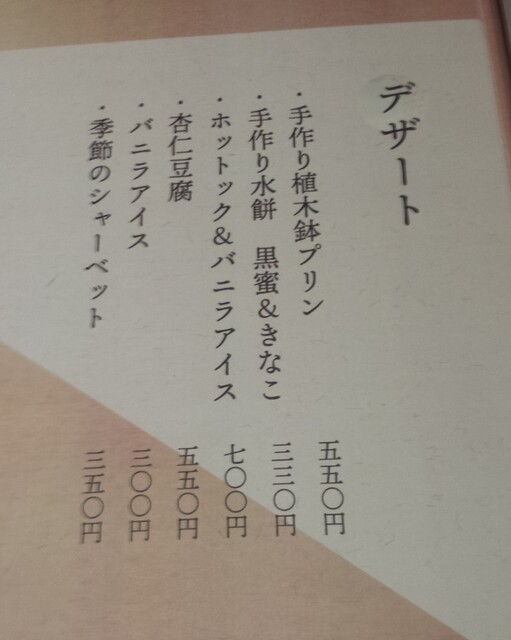 デザート
・手作り植木鉢プリン 五五〇円
・手作り水餅 黒蜜&きなこ 三三〇円
・ホットック&バニラアイス 七〇〇円
・杏仁豆腐 五五〇円
・バニラアイス 三〇〇円
・季節のシャーベット 三五〇円